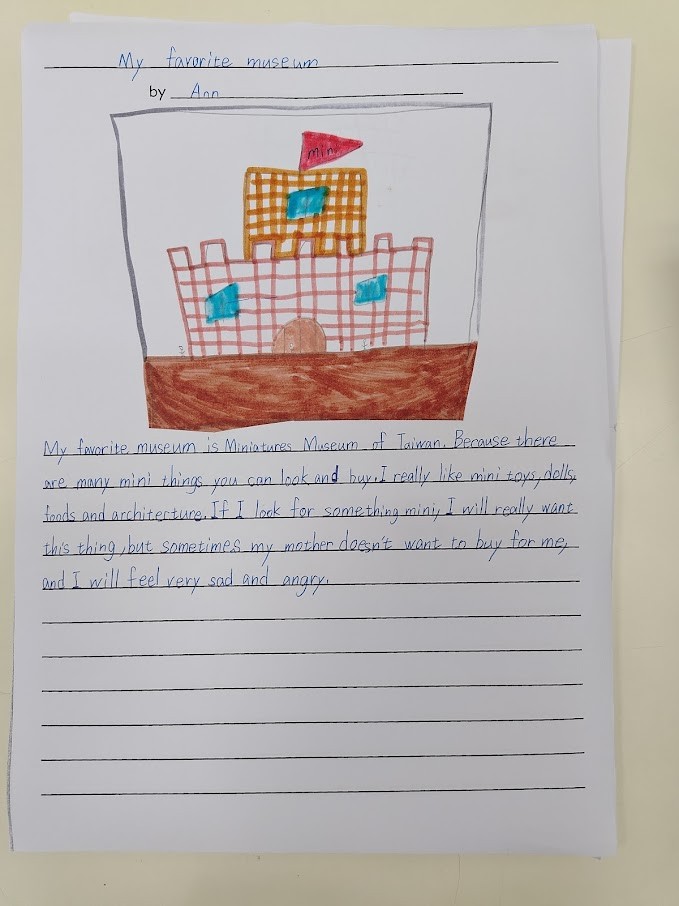 My favorite museum
by Ann
mini
My favorite museum is Miniatures Museum of Taiwan. Because there
are many mini things you can look and buy. I really like mini toys, dolls,
foods and architecture. If I look for something mini, I will really want
this thing, but sometimes my mother doesn't want to buy for me,
and I will feel very sad and angry.